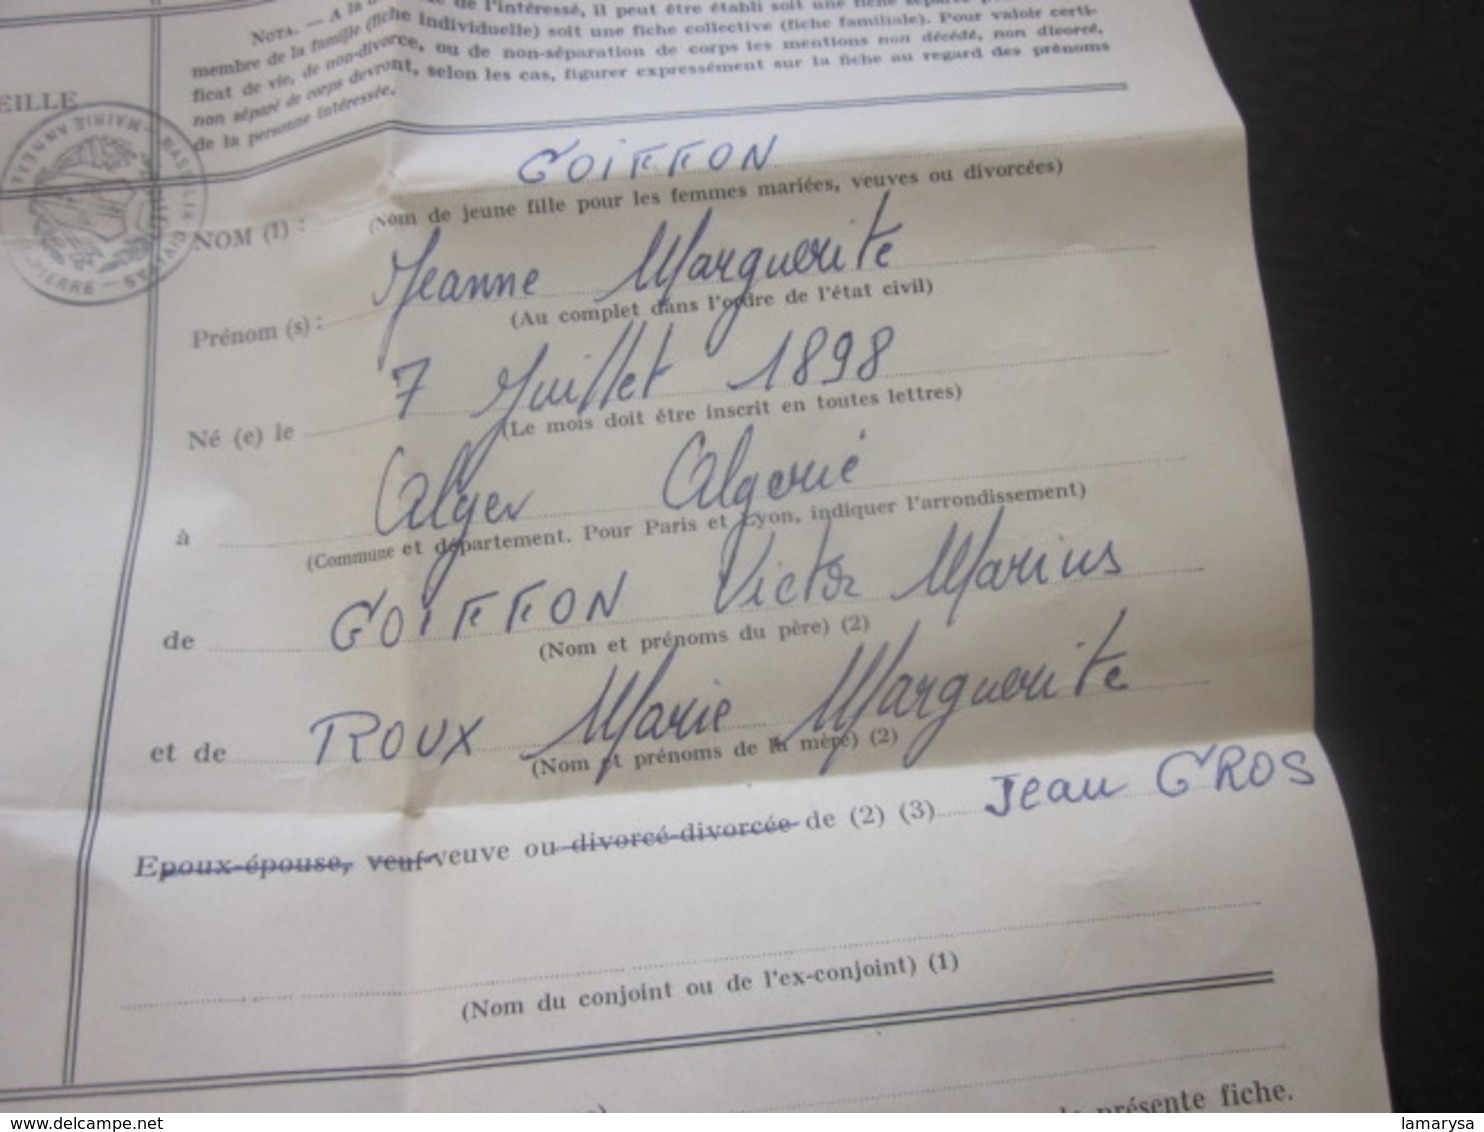 NOTA. — A la de l'intéressé, il peut être établi soit une fiche
membre de la famille (fiche individuelle) soit une fiche collective (fiche familiale). Pour valoir certi-
ficat de vie, de non-divorce, ou de non-séparation de corps les mentions non décédé, non divorcé,
non séparé de corps devront, selon les cas, figurer expressément sur la fiche au regard des prénoms
de la personne intéressée.
EILLE
MAIRIE ANNEXE
PIERRE
NOM (1) : GOIFFON
(Nom de jeune fille pour les femmes mariées, veuves ou divorcées)
Prénom (s) : Jeanne Marguerite
(Au complet dans l'ordre de l'état civil)
Né (e) le 7 Juillet 1898
(Le mois doit être inscrit en toutes lettres)
à Alger Algerie
(Commune et département. Pour Paris et Lyon, indiquer l'arrondissement)
de GOIFFON Victor Marius
(Nom et prénoms du père) (2)
et de ROUX Marie Marguerite
(Nom et prénoms de la mère) (2)
Epoux-épouse, veuf-veuve ou divorcé-divorcée de (2) (3) Jean GROS
(Nom du conjoint ou de l'ex-conjoint) (1)
présente fiche.
www.delcampe.net
lamarysa